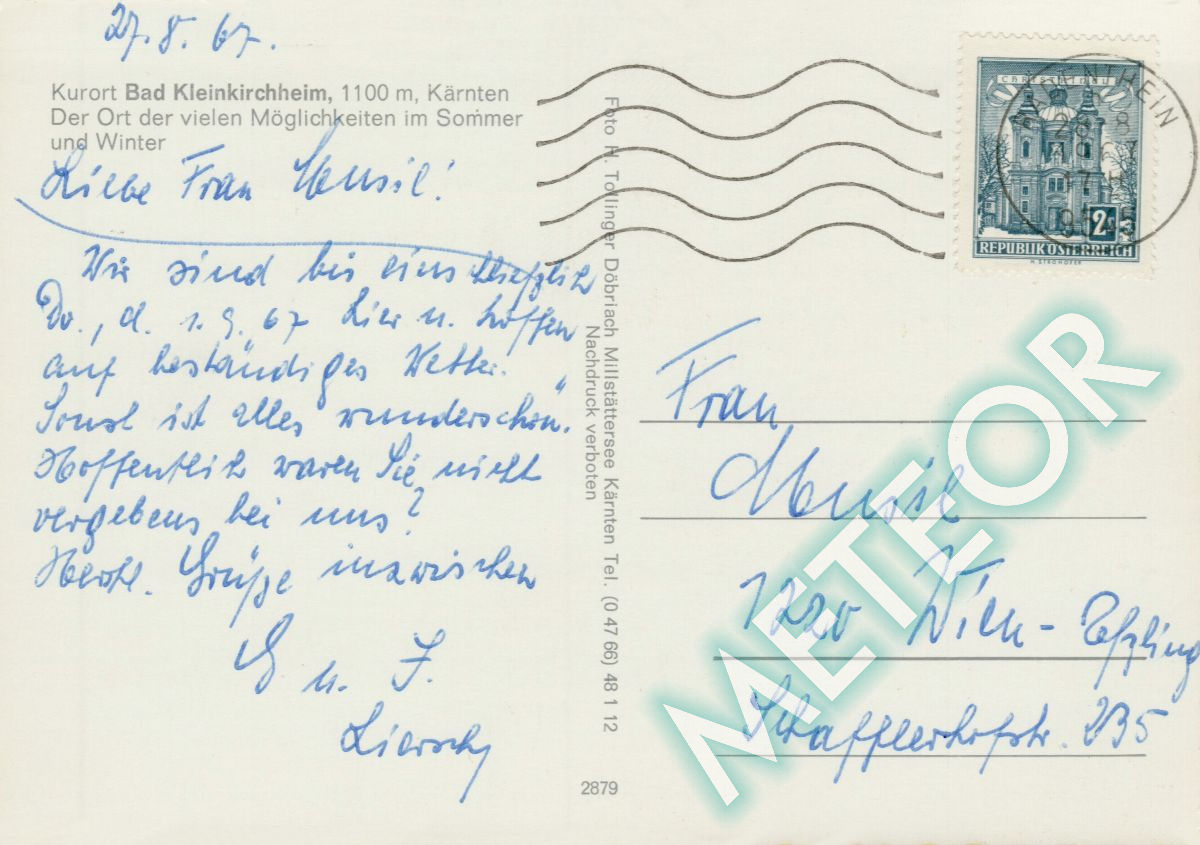 27.8.67.
Kurort Bad Kleinkirchheim, 1100 m, Kärnten
Der Ort der vielen Möglichkeiten im Sommer
und Winter
Liebe Frau Musil!
Wir sind bis einschließlich
Do., d. 1.9.67 hier u. hoffen
auf beständiges Wetter.
Sonst ist alles wunderschön.
Hoffentlich waren Sie nicht
vergebens bei uns?
Herzl. Grüße inzwischen
G. u. J.
Liersch
Foto H. Tollinger Döbriach Millstättersee Kärnten Tel. (0 47 66) 48 1 12
Nachdruck verboten
2879
CHRISTKINDL
2s
REPUBLIK ÖSTERREICH
H. STROHOFER
Frau
Musil
1220 Wien - Eßling
Schafflerhofstr. 235
METEOR